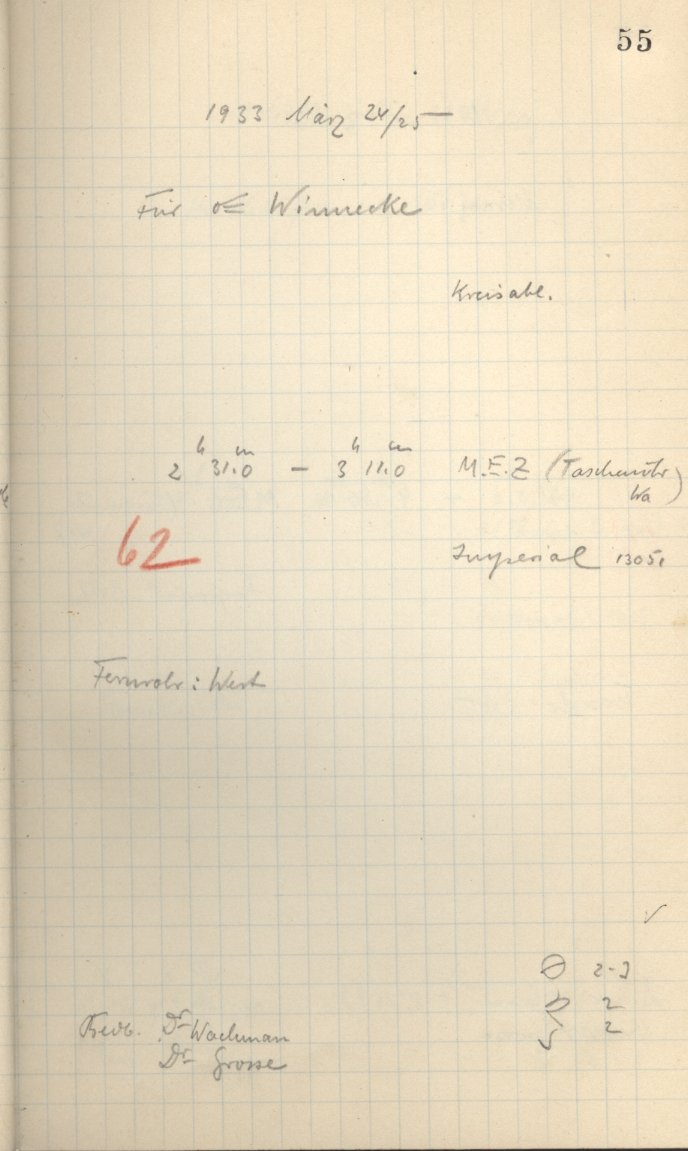 55
1933 März 24/25
Für ☄ Winnecke
Kreisabl.
2h 31m.0 – 3h 11m.0 M.E.Z (Taschenuhr Wa)
62
Imperial 13051
Fernrohr: West
✓
2-3
2
2
Beob. Dr Wachman
Dr Grosse